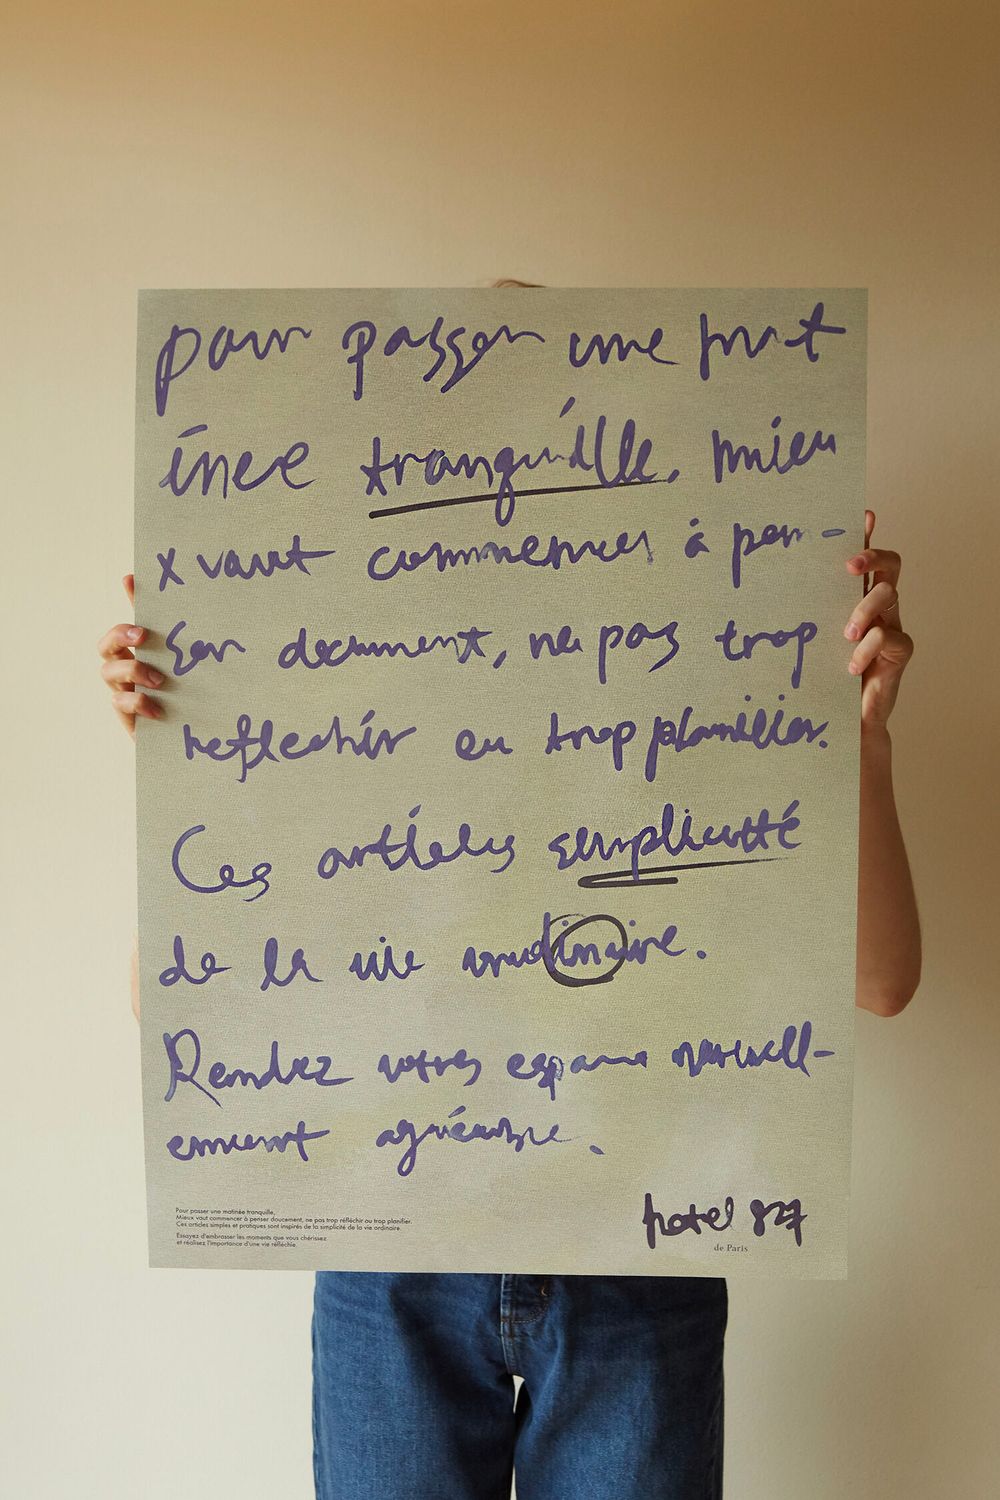 pour passer une mat
inee tranquille. mieu
x vaut commencer à pen-
ser doucement, ne pas trop
reflechir ou trop planifier.
Ces articles simplicité
de la vie ordinaire.
Rendez votres espace naturell-
ement agréable.
hotel 827
de Paris
Pour passer une matinée tranquille,
Mieux vaut commencer à penser doucement, ne pas trop réfléchir ou trop planifier.
Ces articles simples et pratiques sont inspirés de la simplicité de la vie ordinaire.
Essayez d'embrasser les moments que vous chérissez
et réalisez l'importance d'une vie réfléchie.